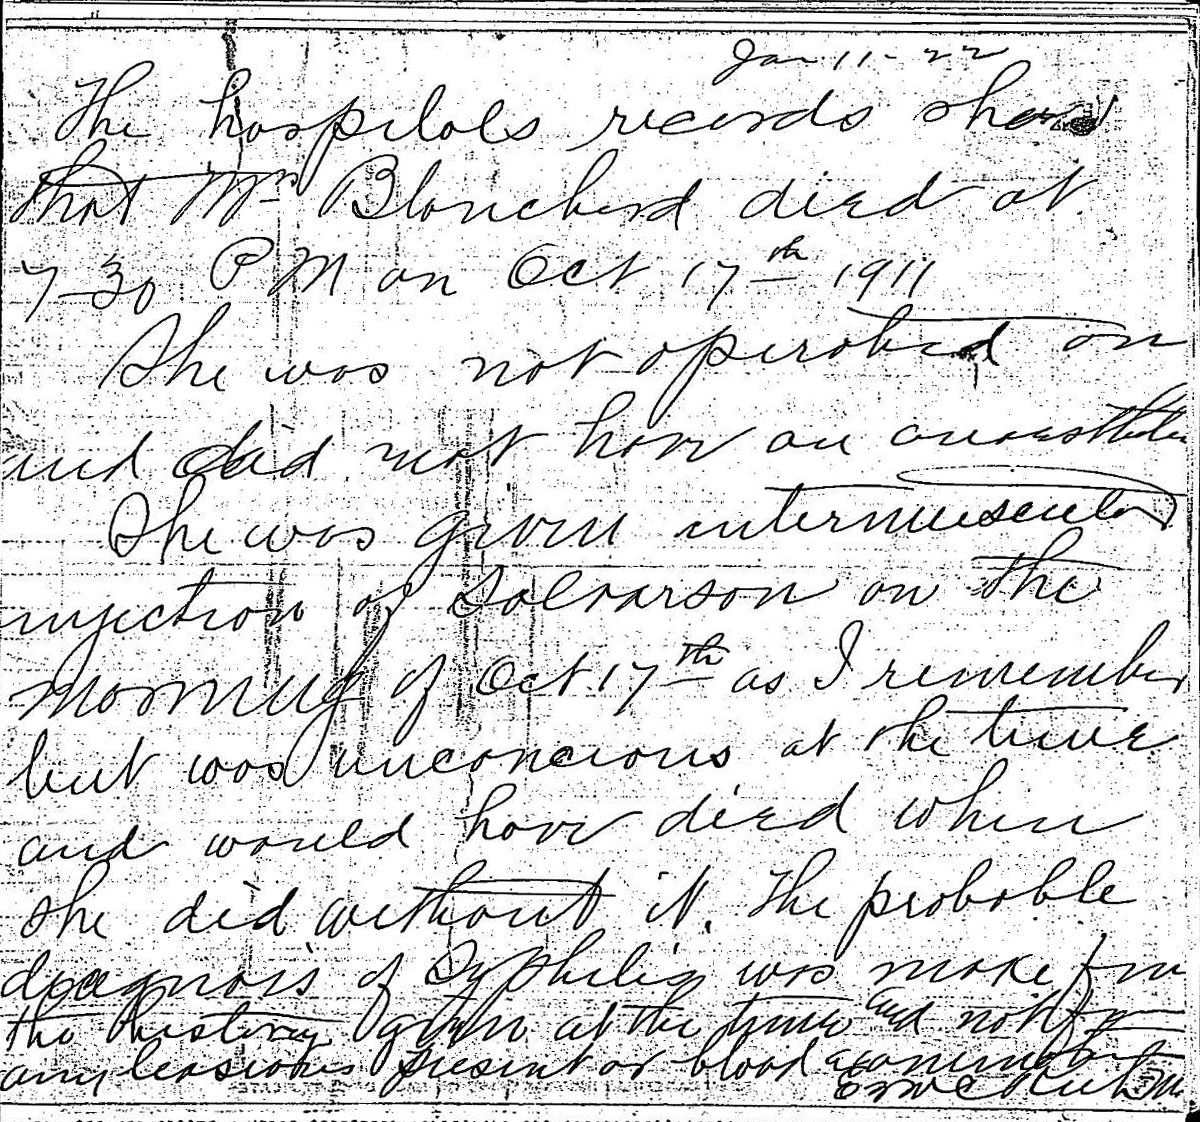 Jan 11 - 22
The hospitals records show
that Mrs Blancherd died at
7-30 P M on Oct 17th 1911
She was not operated on
and did not have an
She was given intermuscular
injection of Salvarson on the
morning of Oct. 17th as I remember
but was unconcious at the time
and would have died when
she did without it. The probable
diagnosis of Syphilis was make from
the history given at the time and not from
any lessions present or blood